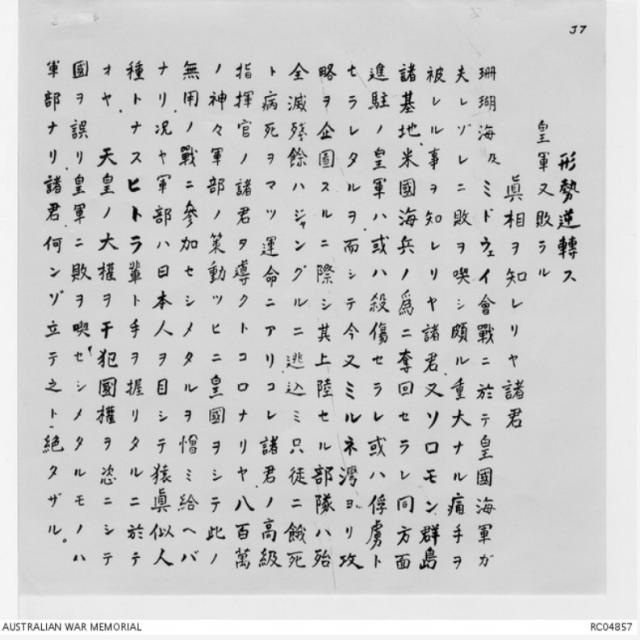 J7
形勢逆轉ス
皇軍又敗ラル
眞相ヲ知レリヤ諸君
珊瑚海及ミドウェイ會戰ニ於テ皇國海軍ガ
夫レゾレニ敗ヲ喫シ頗ル重大ナル痛手ヲ
被レル事ヲ知レリヤ諸君、又ソロモン群島
諸基地、米國海兵ノ爲ニ奪回セラレ同方面
進駐ノ皇軍ハ或ハ殺傷セラレ或ハ俘虜ト
セラレタルヲ、而シテ今又ミルネ灣ヨリ攻
略ヲ企圖スルニ際シ其上陸セル部隊ハ殆
全滅殘餘ハジャングルニ逃込ミ只徒ニ餓死
ト病死ヲマツ運命ニアリコレ諸君ノ高級
指揮官ノ諸君ヲ導クトコロナリヤ八百萬
ノ神々軍部ノ策動ツヒニ皇國ヲシテ此ノ
無用ノ戰ニ參加セシメタルヲ憎ミ給ヘバ
ナリ、况ヤ軍部ハ日本人ヲ目シテ猿眞似人
種トナスヒトラ輩ト手ヲ握リタルニ於テ
オヤ、天皇ノ大權ヲ干犯國權ヲ恣ニシテ
國ヲ誤リ皇軍ニ敗ヲ喫セシメタルモノハ
軍部ナリ諸君、何ンゾ立テ之ト絶タザル。
AUSTRALIAN WAR MEMORIAL
RC04857